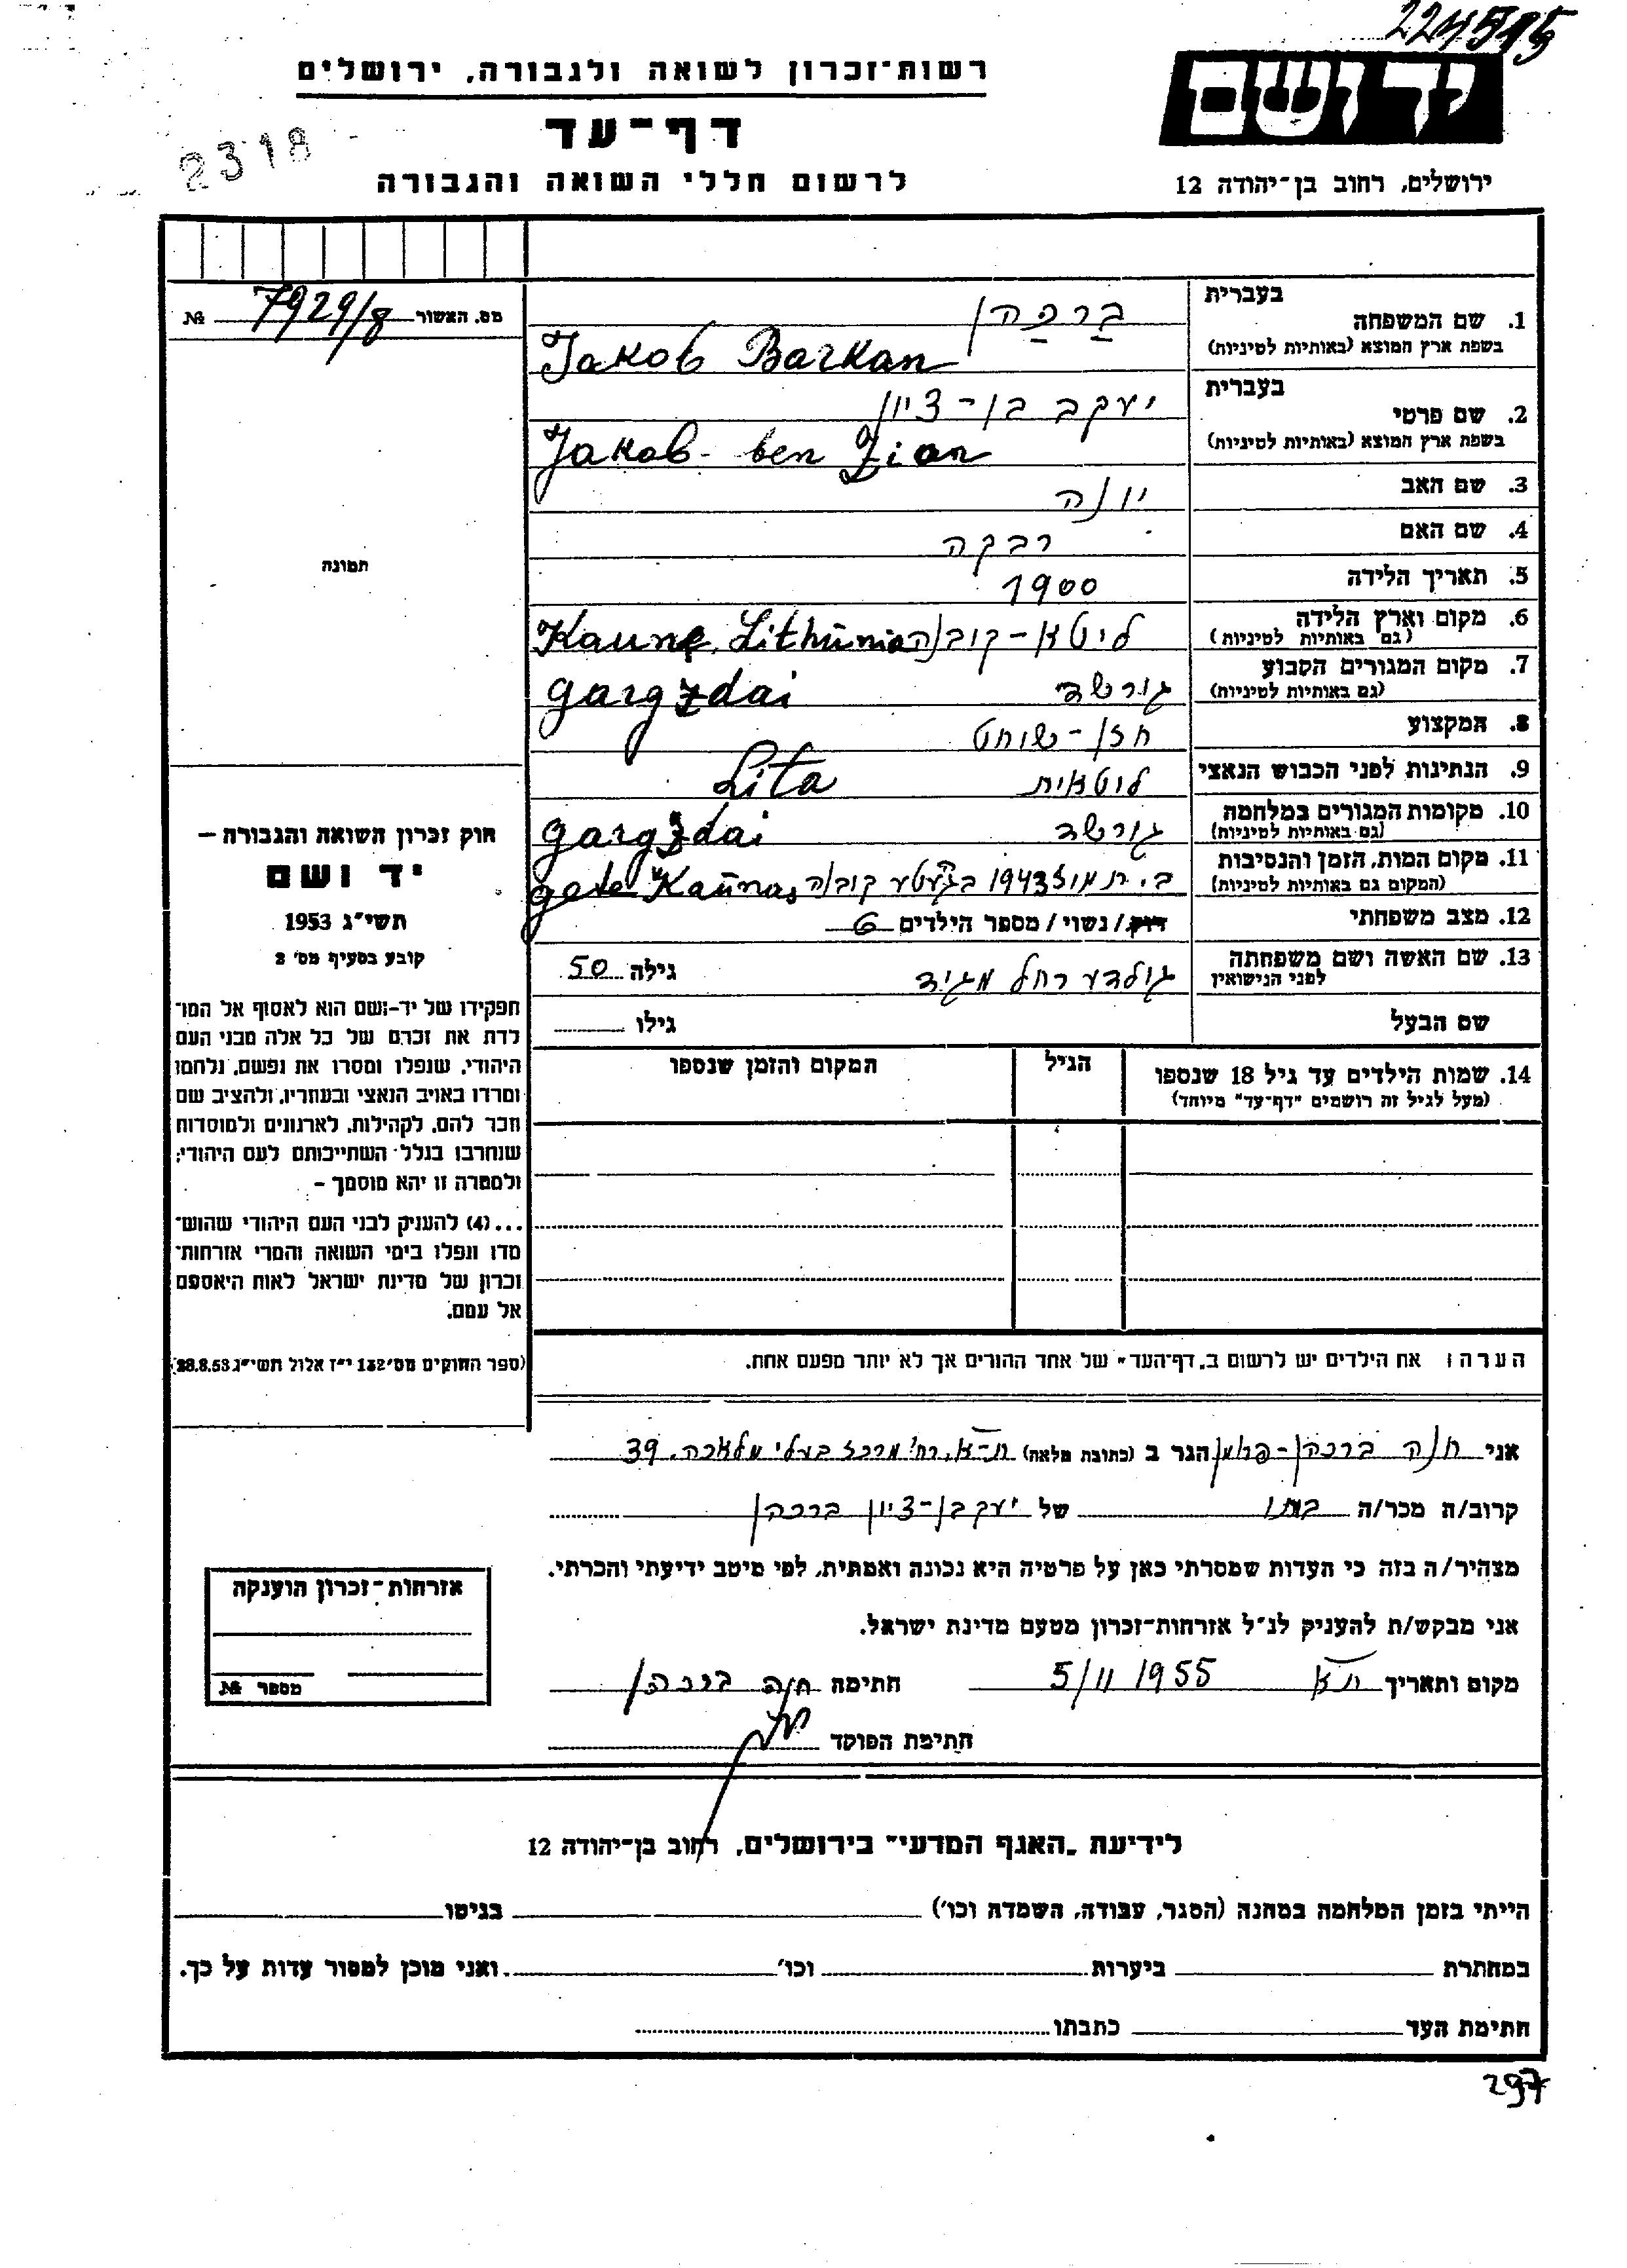 224515
רשות־זכרון לשואה ולגבורה, ירושלים
יד ושם
דף־עד
2318
לרשום חללי השואה והגבורה
ירושלים, רחוב בן־יהודה 12
מס. האשור 7929/8 №
1. שם המשפחה
בעברית
ברכהן
בשפת ארץ המוצא (באותיות לטיניות)
Jakob Barkan
2. שם פרטי
בעברית
יעקב בן-ציון
בשפת ארץ המוצא (באותיות לטיניות)
Jakob-ben Zion
3. שם האב
יונה
4. שם האם
רבקה
5. תאריך הלידה
1900
6. מקום וארץ הלידה
(גם באותיות לטיניות)
ליטא-קובנה Lithūnia
7. מקום המגורים הקבוע
(גם באותיות לטיניות)
גורשד gargzdai
8. המקצוע
חזן-שוחט
9. הנתינות לפני הכבוש הנאצי
ליטאית Lita
10. מקומות המגורים במלחמה
(גם באותיות לטיניות)
גורשד gargzdai
11. מקום המות, הזמן והנסיבות
(המקום גם באותיות לטיניות)
ב. תמוז 1943 קובנה Kaūnas
12. מצב משפחתי
רווק/נשוי/מספר הילדים 6
13. שם האשה ושם משפחתה
לפני הנישואין
גולדע רחל מגיד
גילה 50
שם הבעל
גילו
14. שמות הילדים עד גיל 18 שנספו
(מעל לגיל זה רושמים "דף-עד" מיוחד)
הגיל
המקום והזמן שנספו
הערה: את הילדים יש לרשום ב„דף־העד" של אחד ההורים אך לא יותר מפעם אחת.
תמונה
חוק זכרון השואה והגבורה –
יד ושם
תשי"ג 1953
קובע בסעיף מס' 2
תפקידו של יד-ושם הוא לאסוף אל המו־
לדת את זכרם של כל אלה מבני העם
היהודי, שנפלו ומסרו את נפשם, נלחמו
ומרדו באויב הנאצי ובעוזריו, ולהציב שם
וזכר להם, לקהילות, לארגונים ולמוסדות
שנחרבו בגלל השתייכותם לעם היהודי;
ולמטרה זו יהא מוסמך –
...(4) להעניק לבני העם היהודי שהוש־
מדו ונפלו בימי השואה והמרי אזרחות־
זכרון של מדינת ישראל לאות היאספם
אל עמם.
(ספר החוקים מס' 132 י"ז אלול תשי"ג 28.8.53)
אני חנה ברכהן- הגר ב (כתובת מלאה) ת-א, רח' מרכז בעלי מלאכה, 39
קרוב/ה מכר/ה בתו של יעקב בן-ציון ברכהן
מצהיר/ה בזה כי העדות שמסרתי כאן על פרטיה היא נכונה ואמתית, לפי מיטב ידיעתי והכרתי.
אני מבקש/ת להעניק לנ"ל אזרחות־זכרון מטעם מדינת ישראל.
מקום ותאריך ת"א 5/11 1955 חתימה חנה ברכהן
חתימת הפוקד
אזרחות־זכרון הוענקה
מספר №
לידיעת „האגף המדעי" בירושלים, רחוב בן־יהודה 12
הייתי בזמן המלחמה במחנה (הסגר, עבודה, השמדה וכו') בגיטו
במחתרת ביערות וכו' ואני מוכן למסור עדות על כך.
חתימת העד כתבתו
297